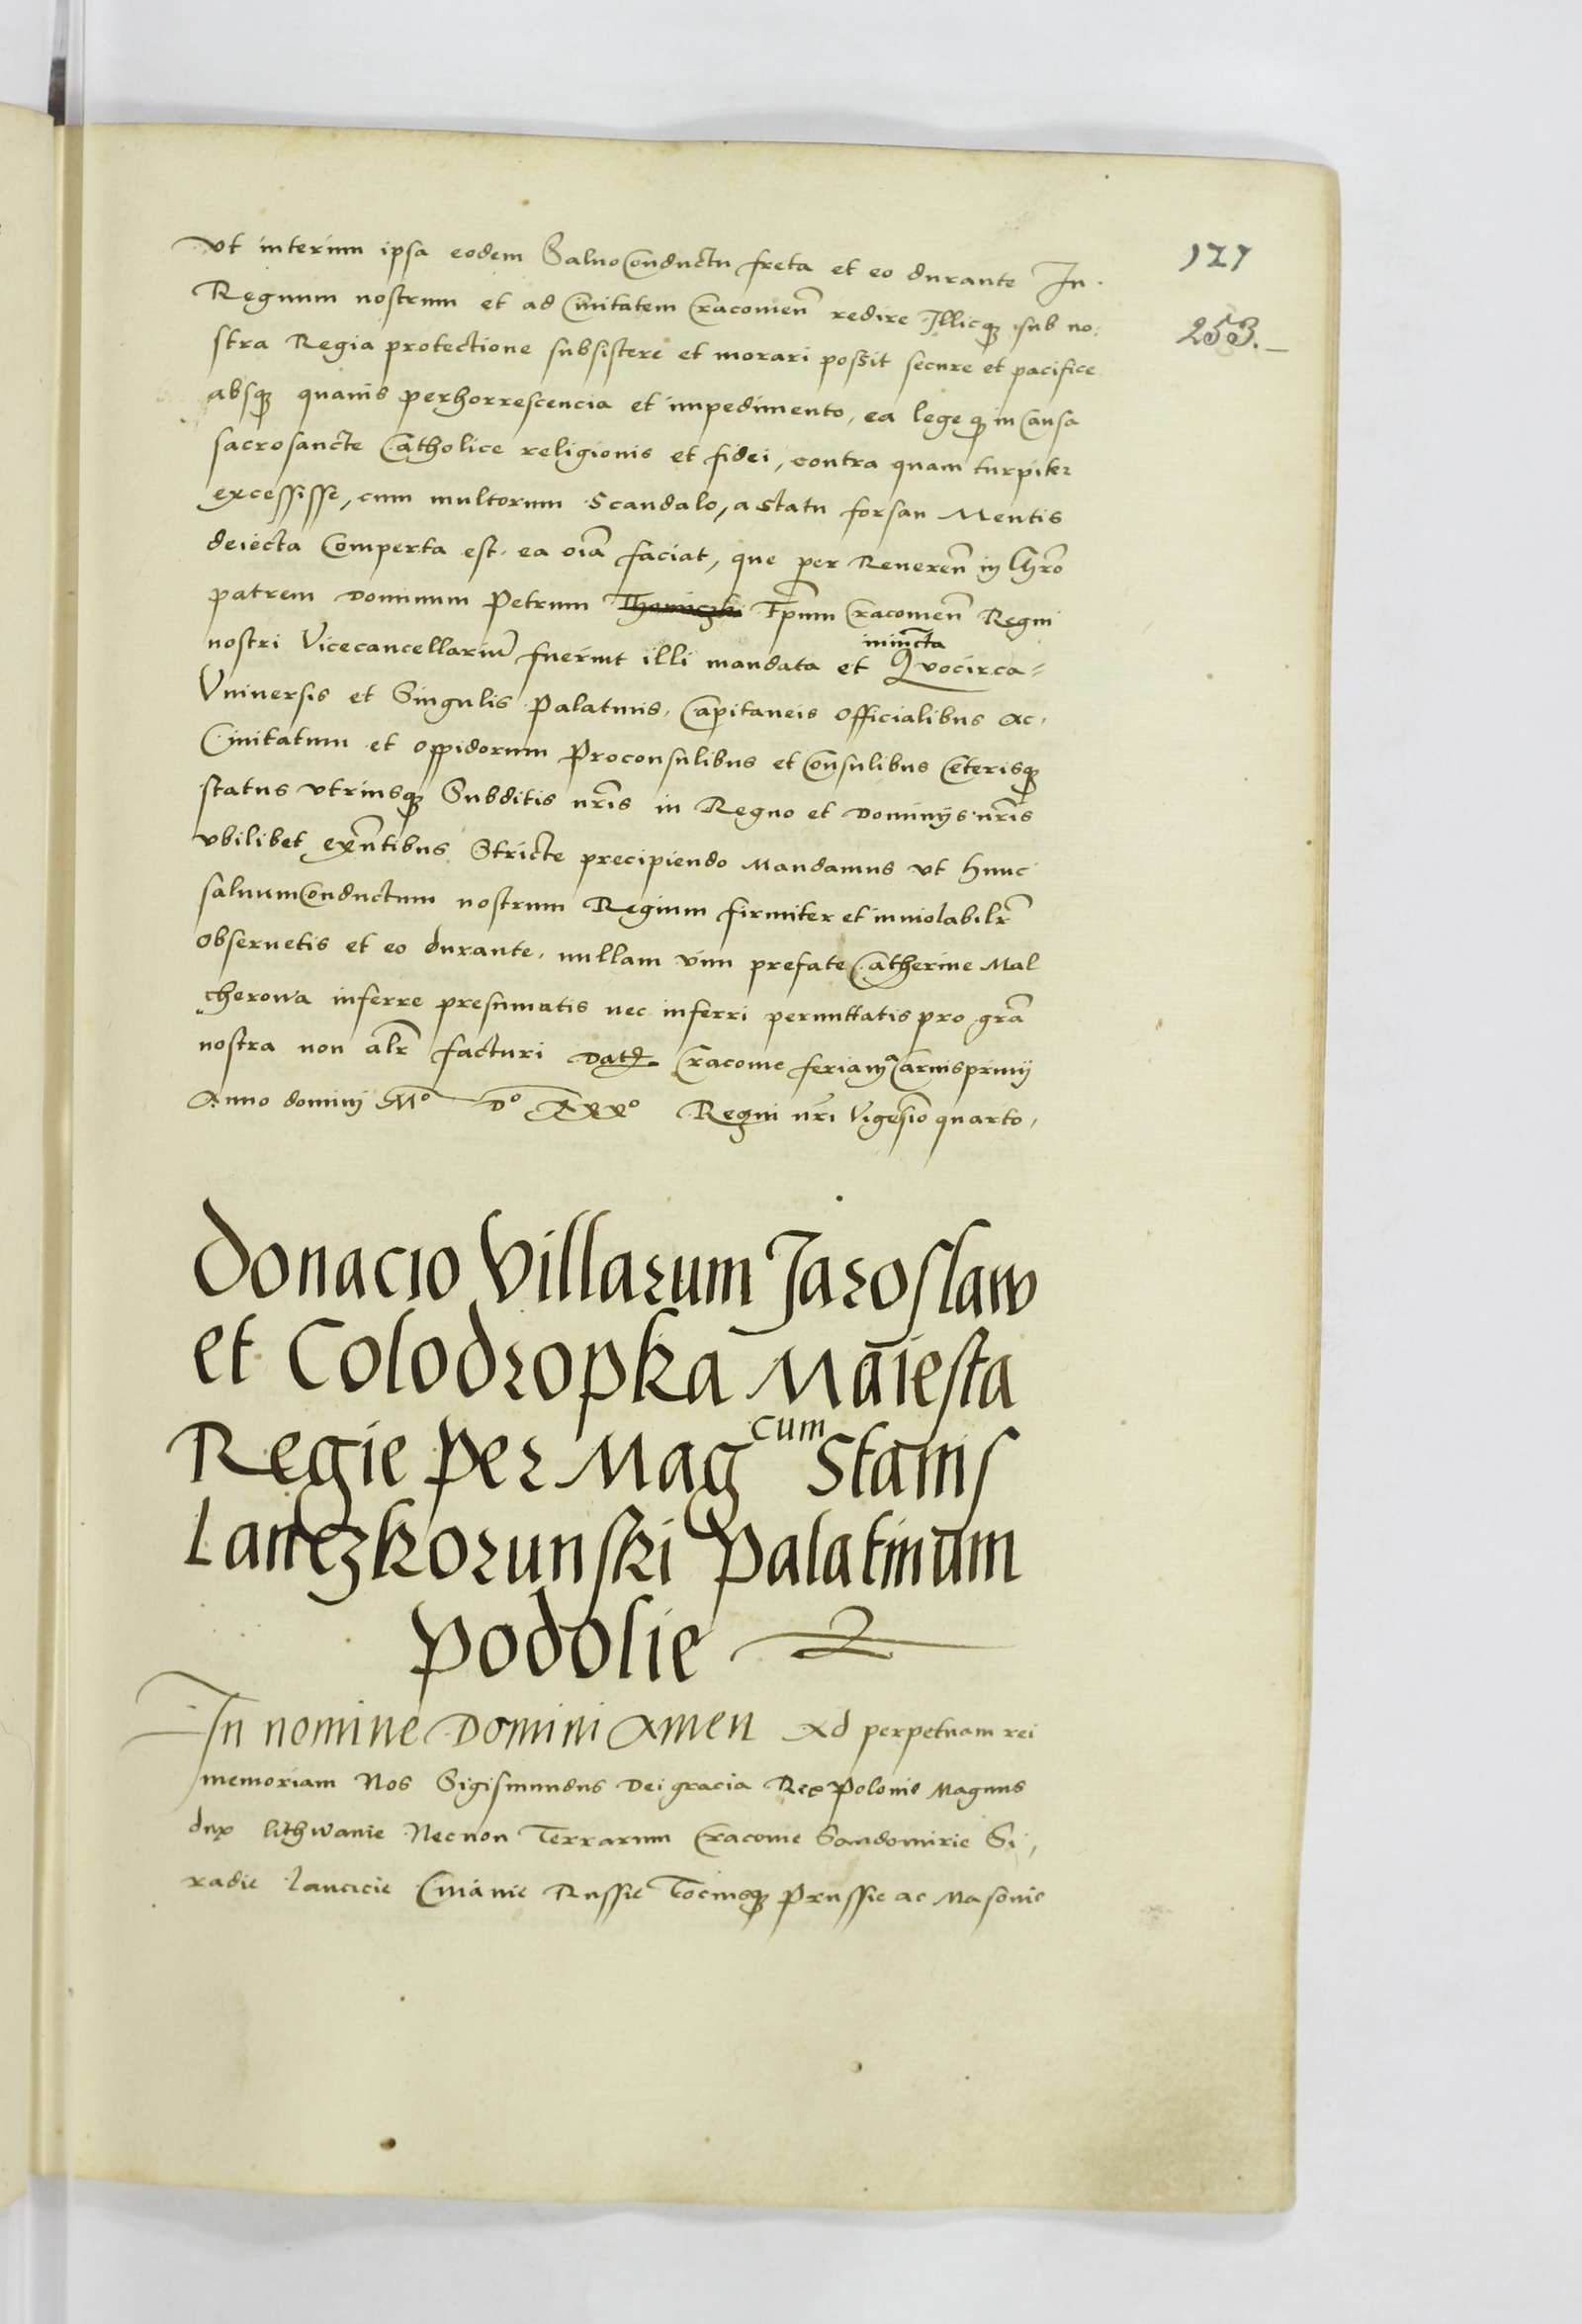 vt interim ipsa eodem Saluoconductu freta et eo durante In
Regnum nostrum et ad Ciuitatem Cracouień redire Illicq; sub no:
stra Regia protectione subsistere et morari possit secure et pacifice
absq; quauis perhorrescencia et impedimento, ea lege q; in Causa
sacrosancte Catholice religionis et fidei, contra quam turpiter
excessisse, cum multorum Scandalo, a statu forsan Mentis
deiecta Comperta est. ea oīa faciat, que per Reuereñ in Chrō
patrem Dominum Petrum Thomiczki Ep̄um Cracouieñ Regni
nostri Vicecancellariū fuerint illi mandata et iniūcta Quocirca=
Vniuersis et Singulis Palatinis. Capitaneis Officialibus ac
Ciuitatum et Oppidorum Proconsulibus et Consulibus Ceterisq;
status vtriusq; Subditis nr̄is in Regno et Dominijs nr̄is
vbilibet exn̄tibus Stricte precipiendo Mandamus vt hunc
saluumconductum nostrum Regium firmiter et inuiolabilr̄
Obseruetis et eo durante. nullam vim prefate Catherine Mal
cherowa inferre presumatis nec inferri permittatis pro gr̄a
nostra non alr̄ facturi Dat̄. Cracouie feria Carnispriuij
Anno dominj Mº Dº XXXº Regni nr̄i Vigesīo quarto,
Donacio Villarum Jaroslaw
et Colodropka Maiesta
Regie per Mag cum Stanis
Lanczkorunski Palatinum
Podolie
In nomine Domini Amen Ad perpetuam rei
memoriam Nos Sigismundus Dei gracia Rex Polonie Magnus
dux Lithwanie Necnon Terrarum Cracouie Sandomirie Si,
radie Lancicie Cuiauie Russie Tociusq; Prussie ac Masouie
253.